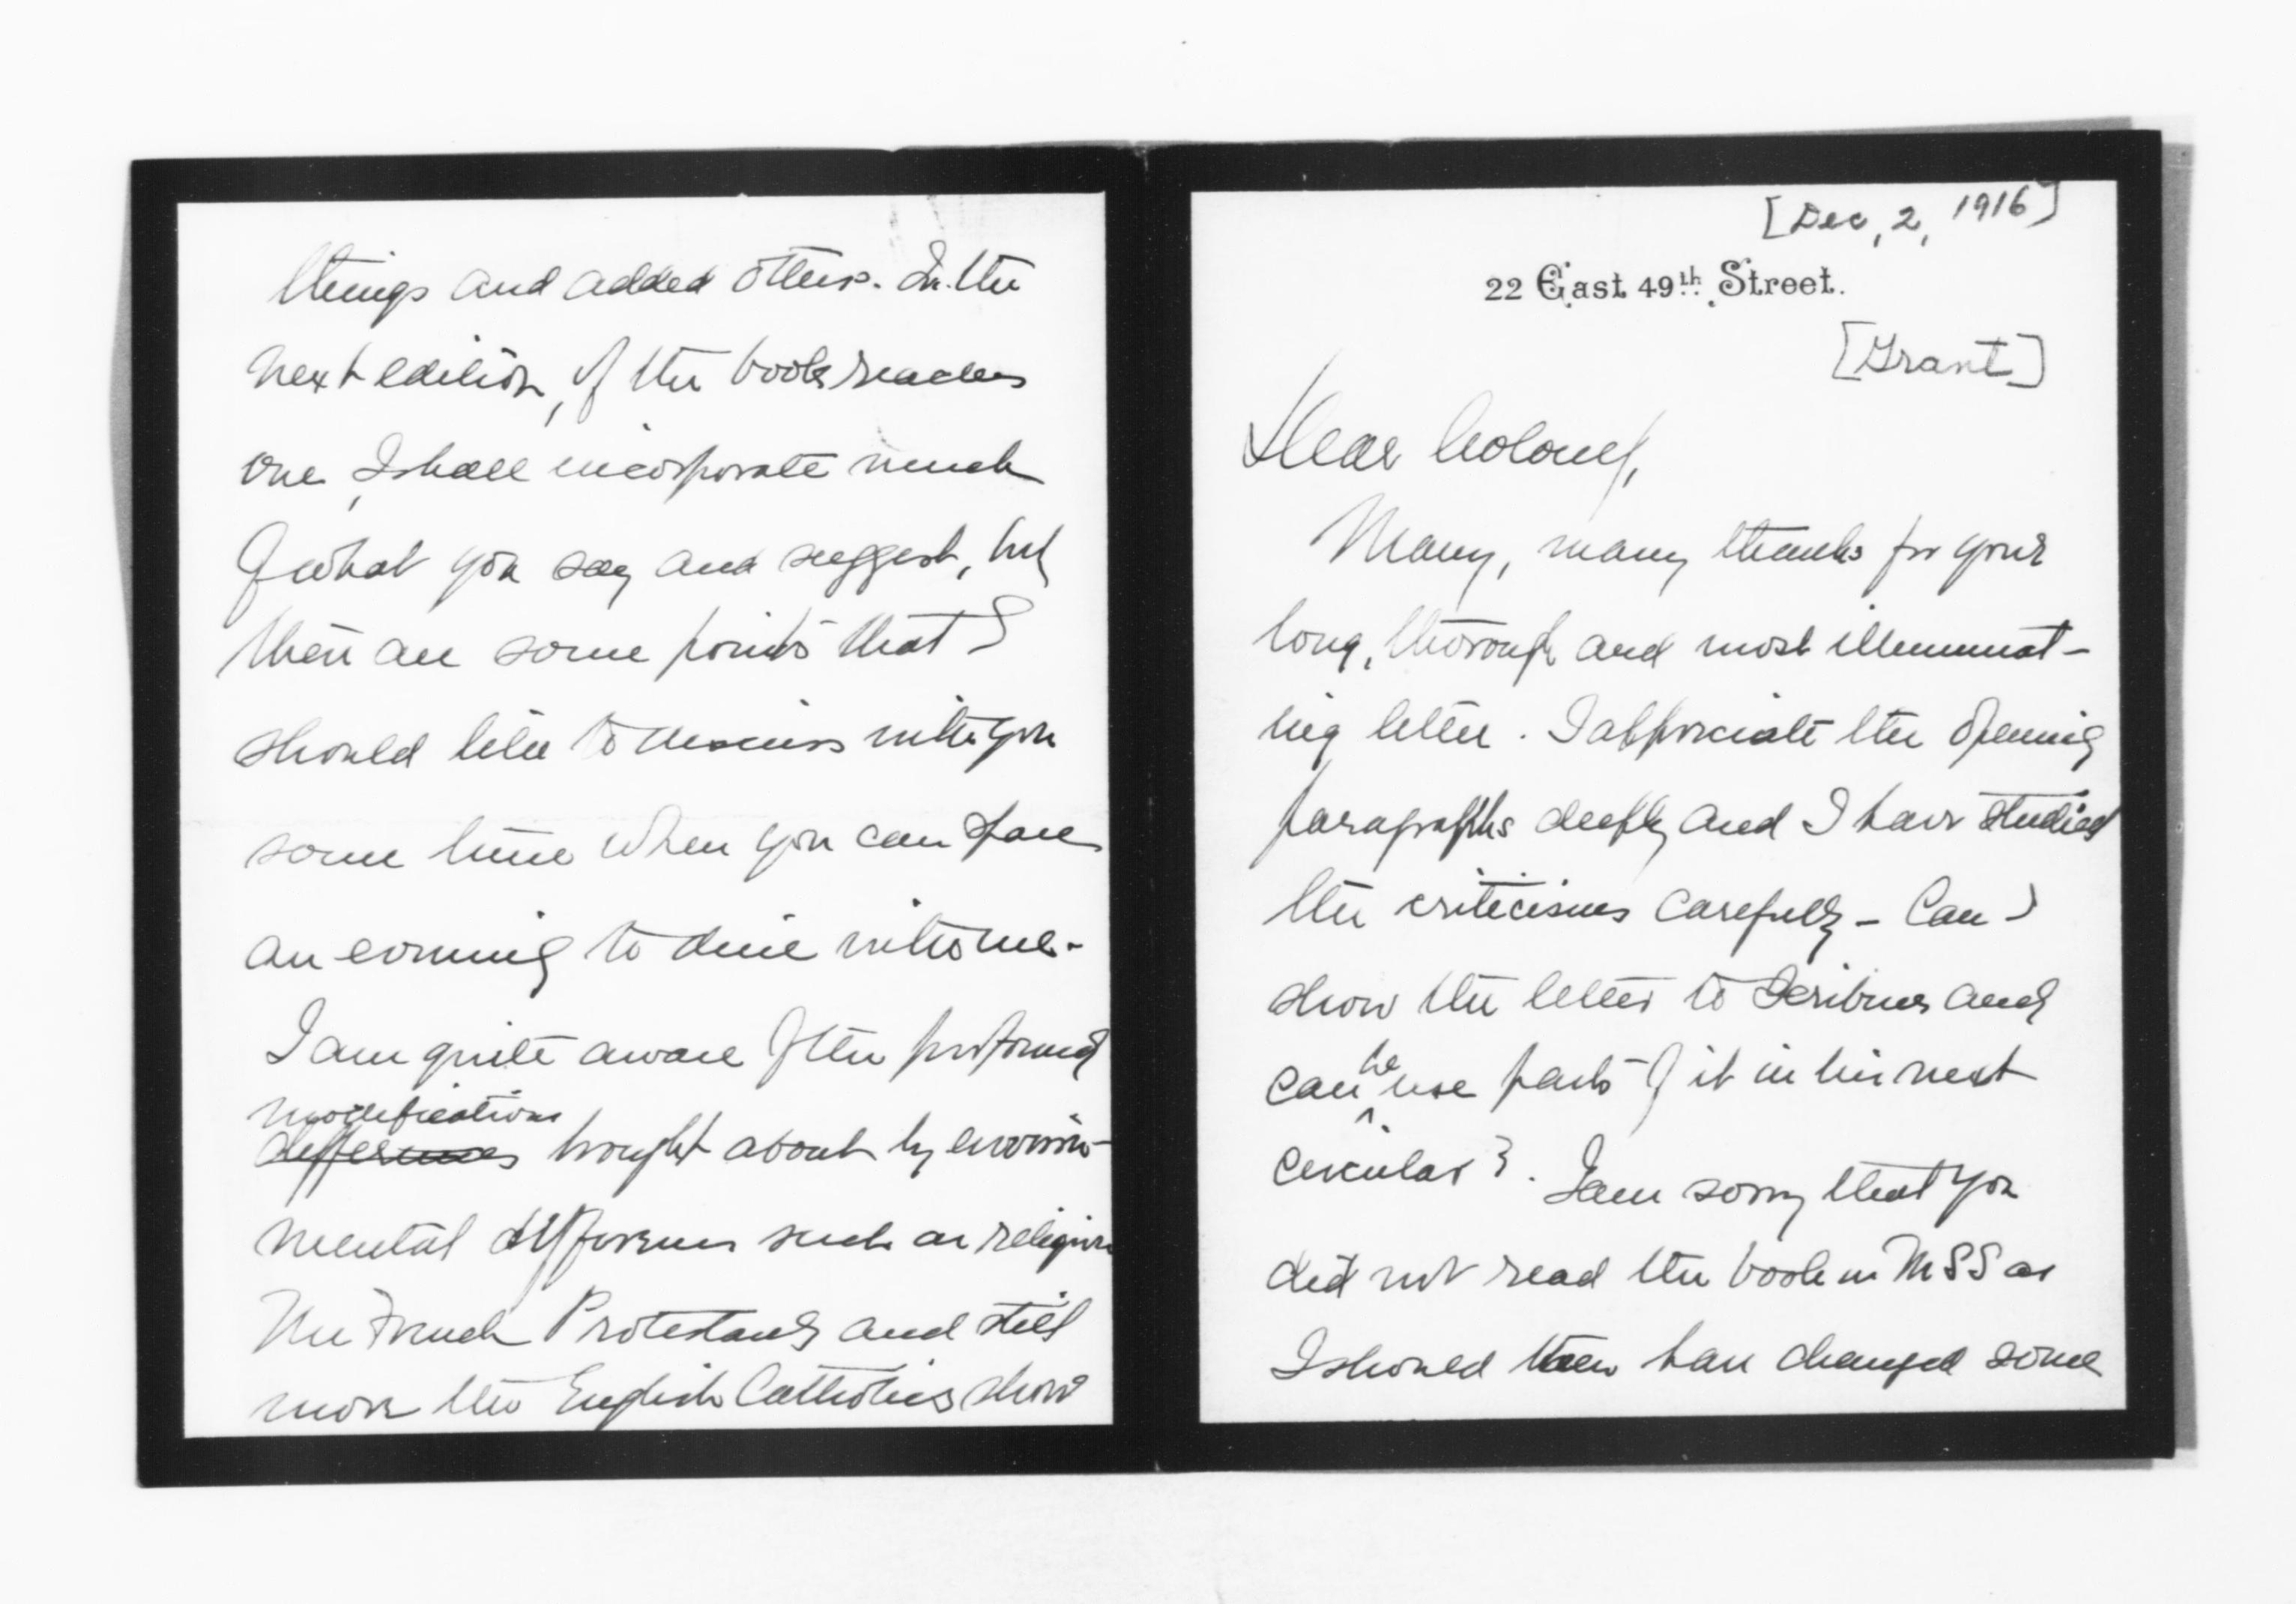 [Dec, 2, 1916]
22 East 49th Street.
[Grant]
Dear Colonel,
Many, many thanks for your
long, thorough and most illuminat-
ing letter. I appreciate the opening
paragraphs deeply and I have studied
the criticisms carefully - Can I
show the letter to Scribner and
can he use parts of it in his next
circular? I am sorry that you
did not read the book in MSS as
I should then have changed some
things and added others. In the
next edition, if the book reaches
one, I shall incorporate much
of what you say and suggest, but
there are some points that I
should like to discuss with you
some time when you can spare
an evening to dine with me.
I am quite aware of the profound
modifications
differences brought about by environ-
mental differences such as religion
The French Protestants and still
more the English Catholics show